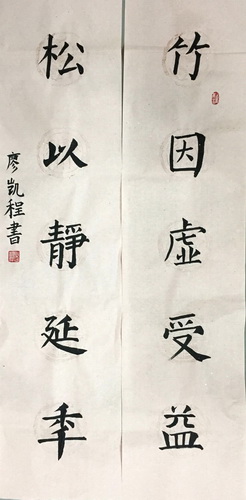 竹因虛受益
松以靜延年
廖凱程書